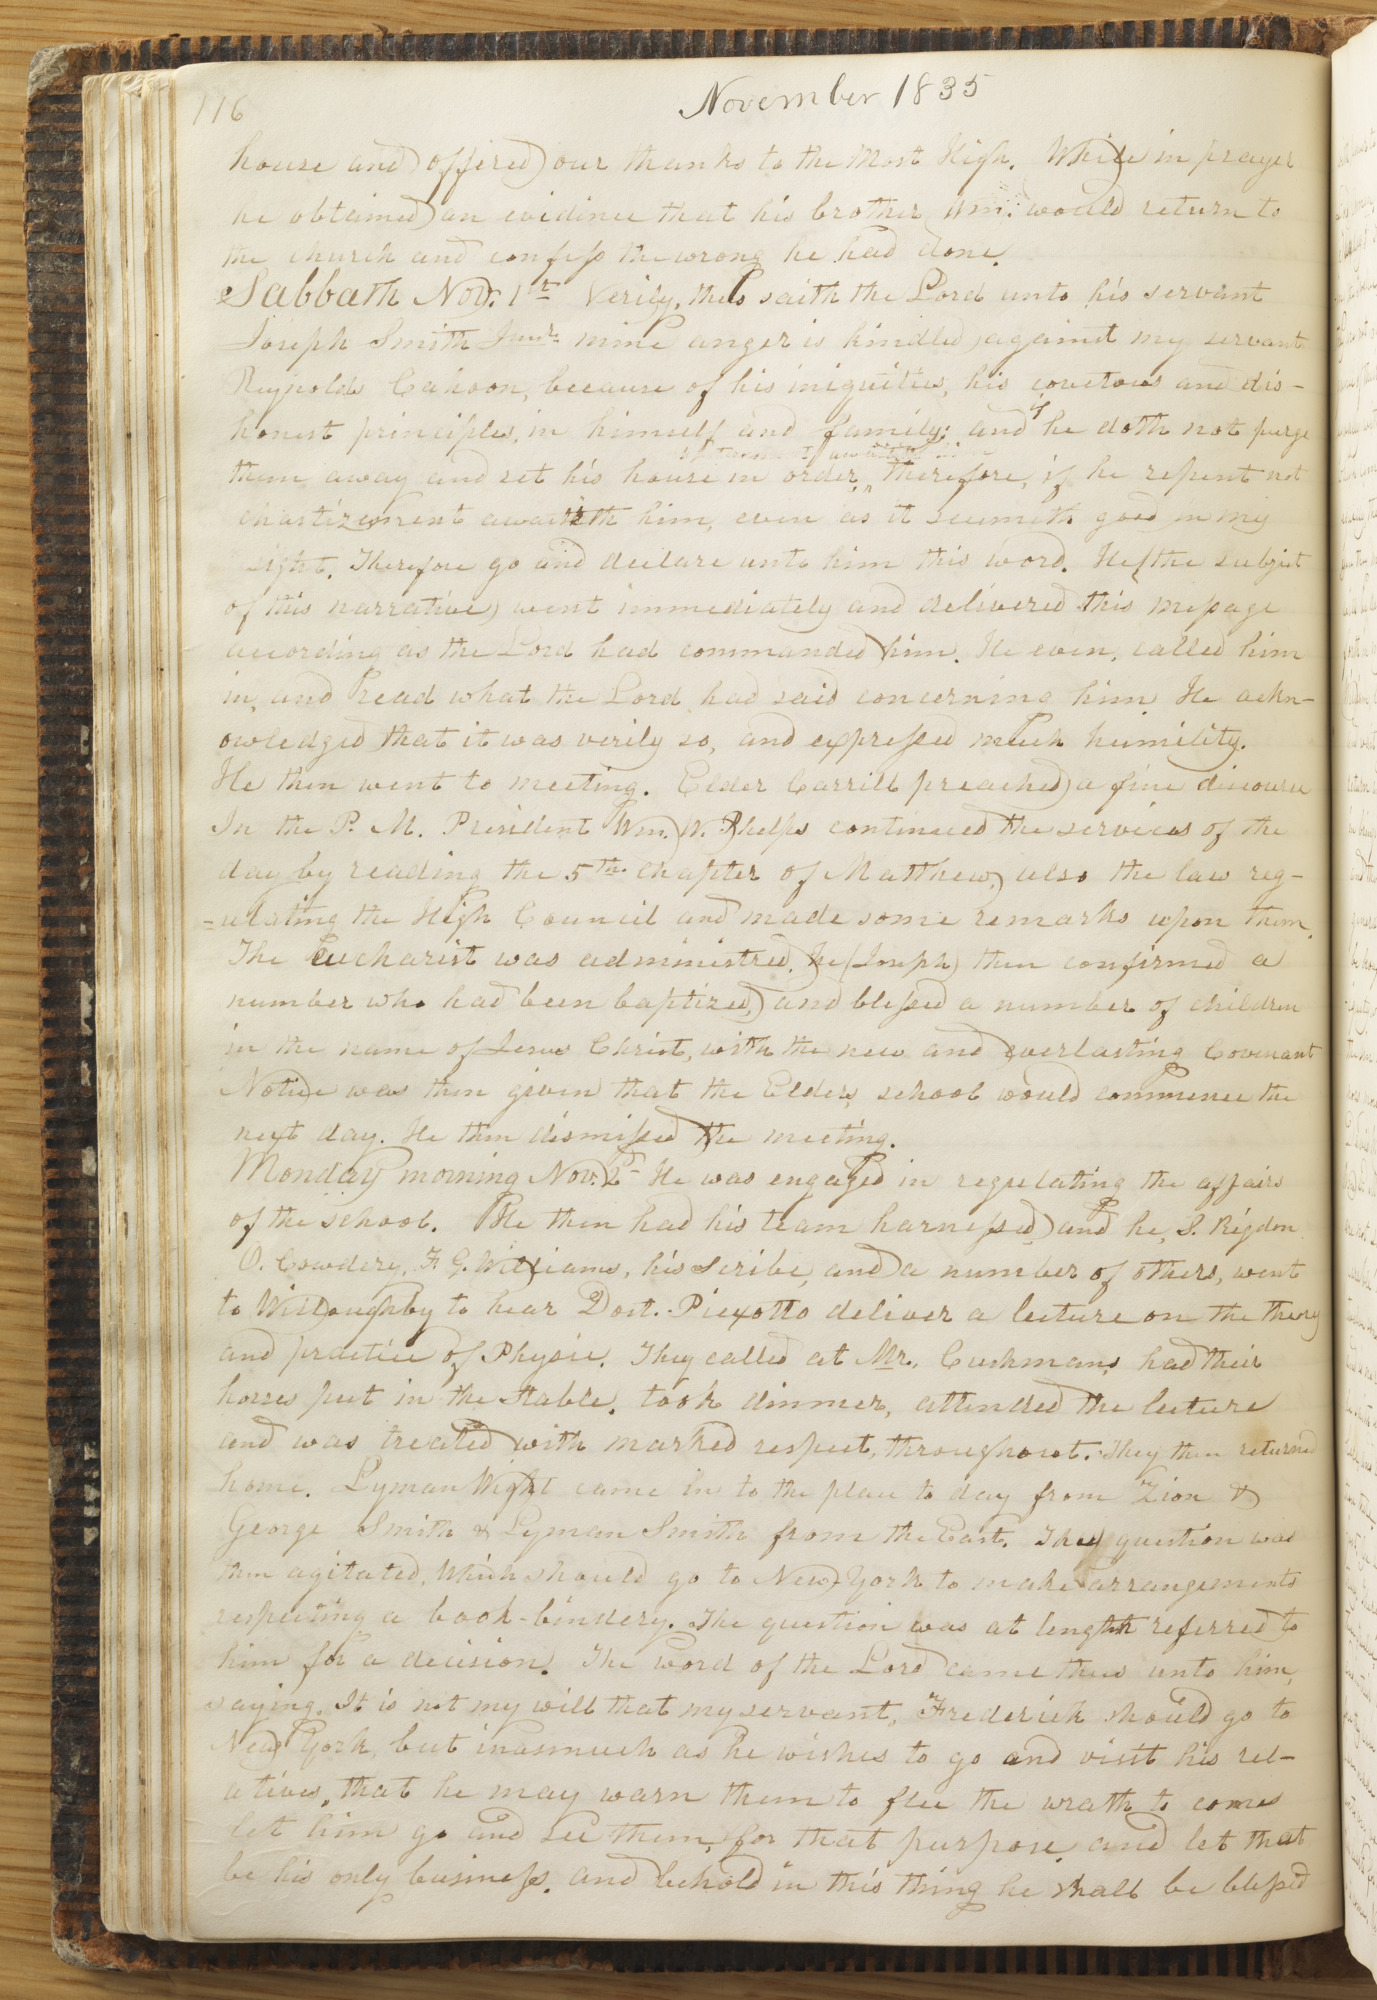 116
November 1835
house and offired our thanks to the Most High. While in prayer
he obtained an evidince that his brother Wm. would return to
the church and confess the wrong he had done.
Sabbath Nov. 1st Verily, thus saith the Lord unto his servant
Joseph Smith Junr. mine anger is kindled against my servant
Reynolds Cahoon, because of his iniquities, his covetous and dis-
honest principles, in himself and family; and he doth not purge
them away and set his house in order, therefore, if he repent not
chastizement awaiteth him, even as it seemeth good in my
sight. Therefore go and declare unto him this word. He (the subject
of this narrative) went immediately and delivered this message
according as the Lord had commanded him. He even, called him
in, and read what the Lord had said concerning him. He ackn-
owledged that it was verily so, and expressed much humility.
He then went to meeting. Elder Carrill preached a fine discourse
In the P. M. President Wm. W. Phelps continued the services of the
day by reading the 5th. Chapter of Matthew, also the law reg-
=ulating the High Council and made some remarks upon them.
The Eucharist was administred. He (Joseph) then confirmed a
number who had been baptized, and blessed a number of children
in the name of Jesus Christ, with the new and everlasting Covenant
Notice was then given that the Elders, school would commence the
next day. He then dismissed the meeting.
Monday morning Nov. 2d He was engaged in regulating the affairs
of the school. He then had his team harnessed and he, S. Rigdon
O. Cowdery, F. G. Williams, his Scribe, and a number of others, went
to Willoughby to hear Doct. Piexotto deliver a lecture on the theory
and practice of Physic. They called at Mr. Cushmans, had their
horses put in the stable, took dinner, attended the lecture
and was treated with marked respect, throughout. They then returned
home. Lyman Wight came in to the place to day from Zion &
George Smith & Lyman Smith from the East. The question was
then agitated, Which should go to New York to make arrangements
respecting a book-bindery. The question was at length referred to
him for a decision. The word of the Lord came thus unto him,
saying. It is not my will that my servant, Frederick should go to
New York, but inasmuch as he wishes to go and visit his rel-
atives, that he may warn them to flee the wrath to come
let him go and see them, for that purpose, and let that
be his only business, and behold in this thing he shall be blessed